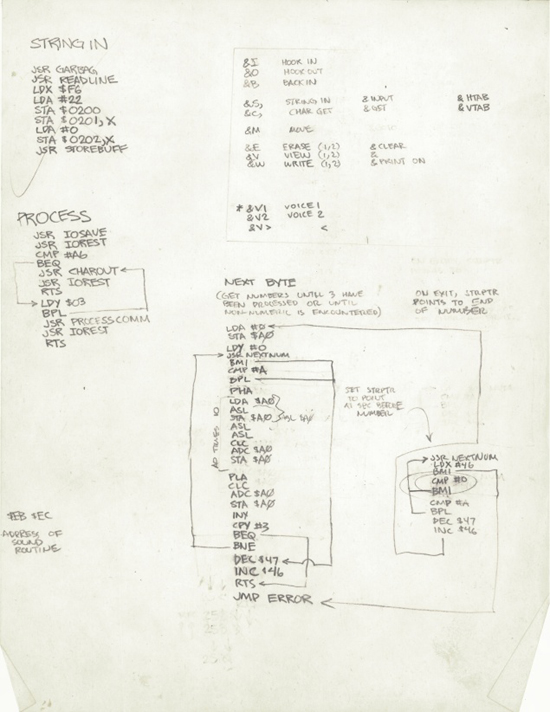 STRING IN
JSR GARBAG
JSR READLINE
LDX #$F6
LDA #22
STA $0200
STA $0201,X
LDA #0
STA $0202,X
JSR STOREBUFF
&I HOOK IN
&O HOOK OUT
&B BACK IN
&S, STRING IN & INPUT & HTAB
&C, CHAR GET & GET & VTAB
&M MOVE
&E ERASE (1,2) & CLEAR
&V VIEW (1,2) &
&W WRITE (1,2) & PRINT ON
* &V1 VOICE 1
&V2 VOICE 2
&V> <
PROCESS
JSR IOSAVE
JSR IOREST
CMP #A6
BEQ
JSR CHAROUT
JSR IOREST
RTS
LDY $03
BPL
JSR PROCESSCOMM
JSR IOREST
RTS
NEXT BYTE
(GET NUMBERS UNTIL 3 HAVE
BEEN PROCESSED OR UNTIL
NON-NUMERIC IS ENCOUNTERED)
ON EXIT, STRPTR
POINTS TO END
OF NUMBER
LDA #0
STA $AØ
LDY #0
JSR NEXTNUM
BMI
CMP #A
BPL
PHA
LDA $AØ
ASL
STA $AØ
ASL
ASL
CLC
ADC $AØ
STA $AØ
AØ TIMES 10
PLA
CLC
ADC $AØ
STA $AØ
INY
CPY #3
BEQ
BNE
DEC $47
INC $46
RTS
JMP ERROR
SET STRPTR
TO POINT
AT SPC BEFORE
NUMBER
JSR NEXTNUM
LDX #46
BMI
CMP #0
BMI
CMP #A
BPL
DEC $47
INC $46
$EB $EC
ADDRESS OF
SOUND
ROUTINE